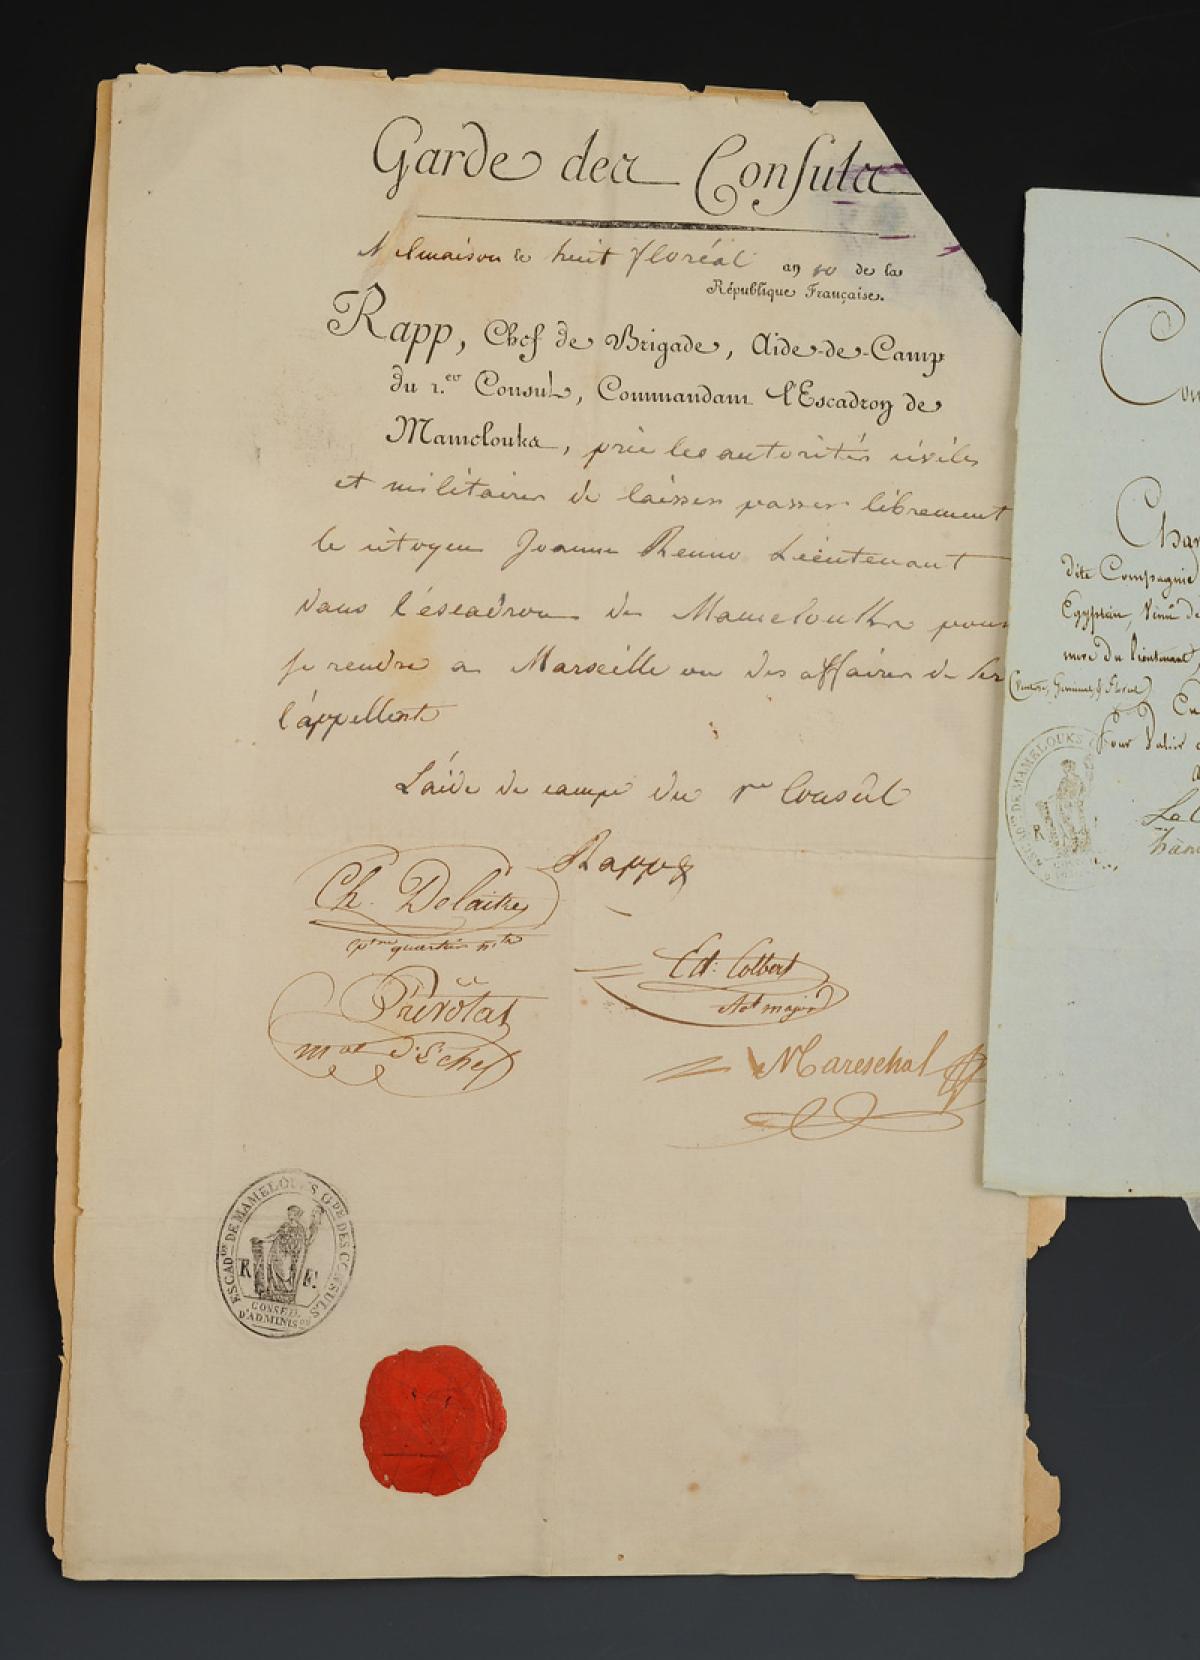 Garde des Consuls
Malmaison le huit floréal an 10 de la
République Française.
Rapp, Chef de Brigade, Aide-de-Camp
du 1.er Consul, Commandant l'Escadron de
Mamelouks, prie les autorités civiles
et militaires de laisser passer librement
le citoyen Joanne Renno Lieutenant
dans l'éscadron de Mamelouks pour
se rendre a Marseille ou des affaires de Ser
l'appellent
L'aide de camp du 1er Consul
Rapp
Ch. Delaitre
quartier
Prévotat
mal d. Chef
Ed: Colbert
Adt major
Mareschal
ESCAD.on DE MAMELOUKS G.DE DES CONSULS
R F.
CONSEIL
D'ADMINIS.ON
C
Con
Char
dite Compagnie
Egyptien, Venû de
mere du lieutenant
Cu
Pour Valoir
ESCAD.on DE MAMELOUKS
R